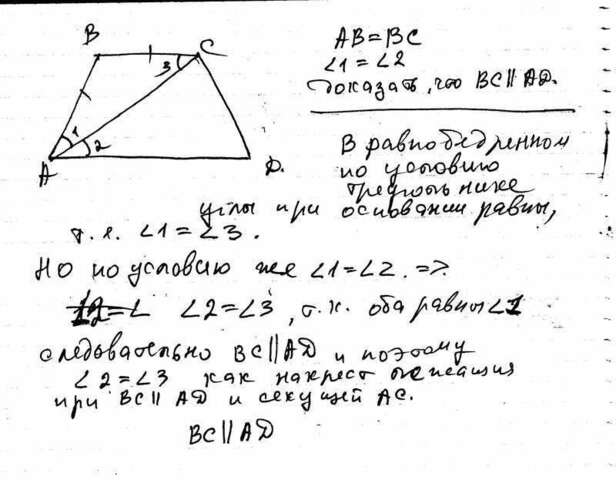 B
C
3
1
2
A
D.
AB = BC
∠1 = ∠2
Доказать, что BC ∥ AD.
В равнобедренном
по условию
треугольнике
углы при основании равны,
т. е. ∠1 = ∠3.
Но по условию же ∠1 = ∠2. =>
∠2 = ∠3, т.к. оба равны ∠1
следовательно BC ∥ AD и поэтому
∠2 = ∠3 как накрест лежащие
при BC ∥ AD и секущей AC.
BC ∥ AD